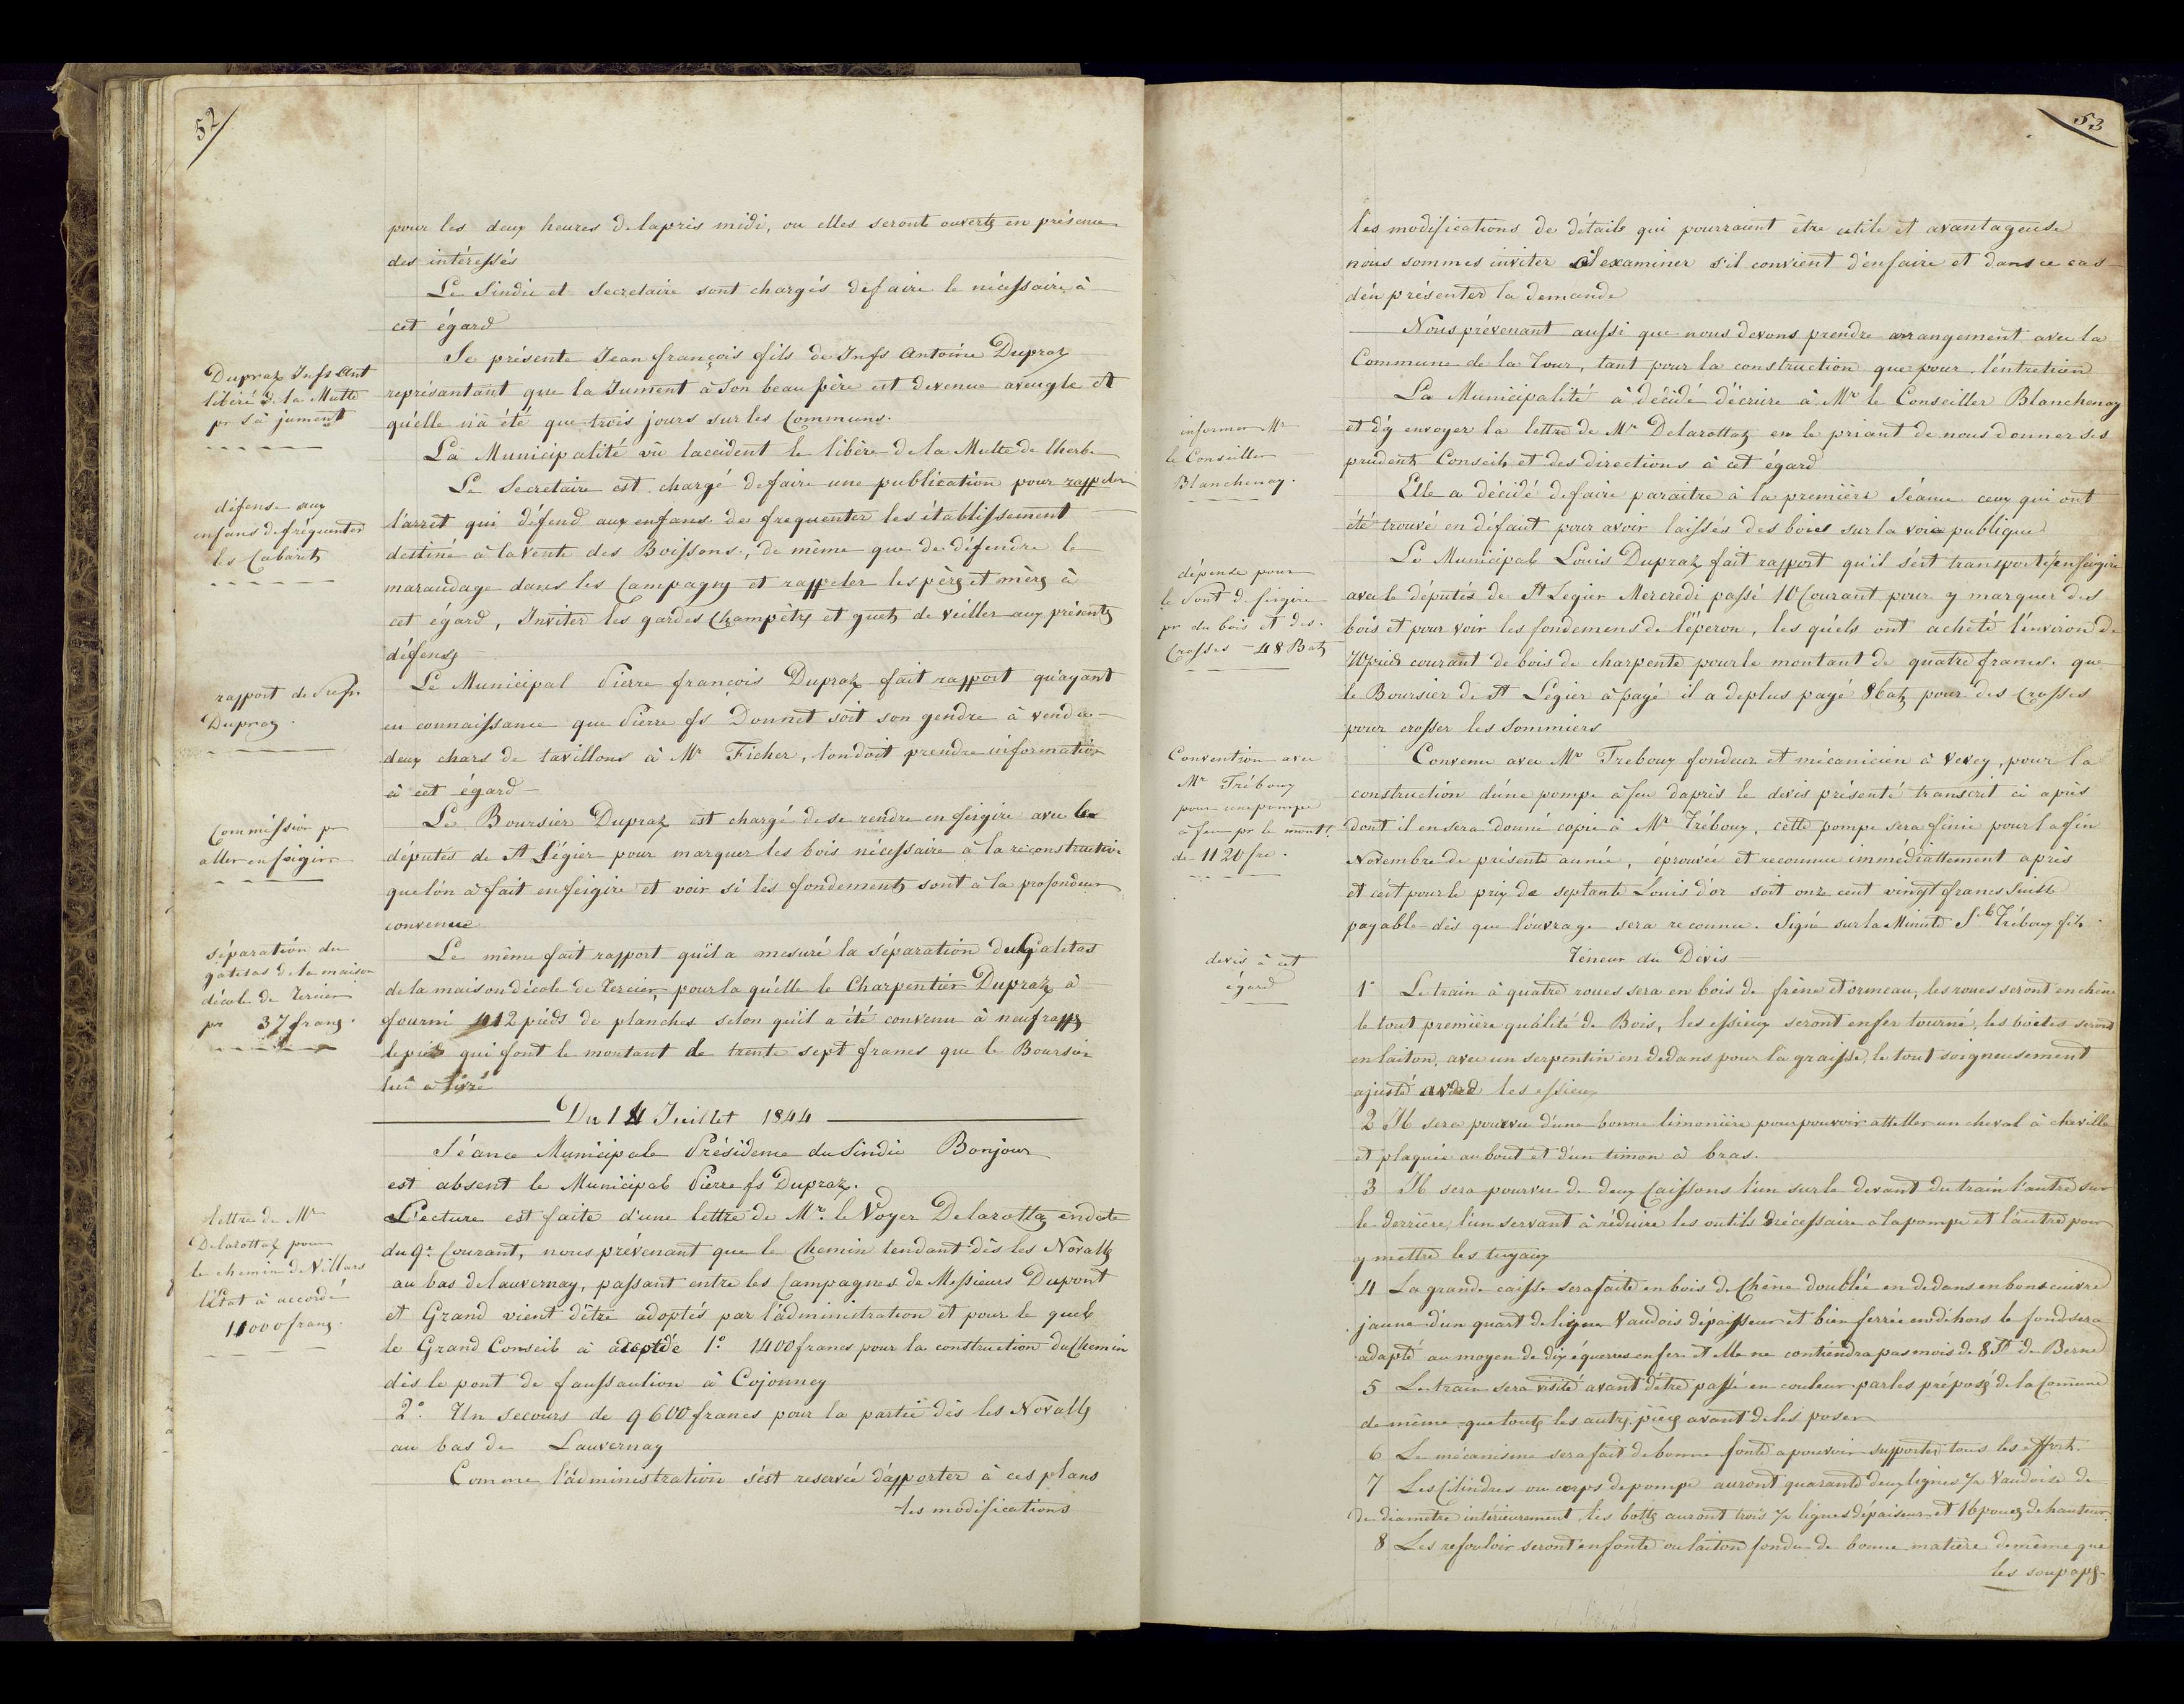 52
pour les deux heures de laprès midi, ou elles seront ouverts en présence
des intéressés
Le Sindic et Secretaire sont chargés de faire le nécessaire à
cet égard
Dupraz Jnfs Ant
libéré de la Multe
pr sa jument
Se présente Jean françois fils de Jnfs Antoine Dupraz
représentant que la Jument à Son beau père est devenue aveugle et
qu'elle n'a été que trois jours sur les Communs.
La Municipalité vû laccident le libère de la Multe de lherbe
défense aux
enfans de fréquenter
les Cabarets
Le Secretaire est chargé de faire une publication pour rappeler
l'arrêt qui défend aux enfans de frequenter les établissement
destiné à la vente des Boissons, de même que de défendre le
maraudage dans les Campagnes et rappeler les pères et mères à
cet égard, Inviter les gardes Champètres et guets de veiller aux présents
défenses
rapport de Prefs
Dupraz
Le Municipal Pierre françois Dupraz fait rapport qu'ayant
eu connaissance que Pierre fs Donnet soit son gendre à vendu
deux chars de tavillons à Mr Ficher, londoit prendre information
à cet égard
Commission pr
aller en feigire
Le Boursier Dupraz est chargé de se rendre en feigire avec les
députés de St Légier pour marquer les bois nécessaire à la reconstruction
que lón à fait en feigire et voir si les fondements sont à la profondeur
convenue
séparation du
galetas de la maison
décole de Tercier
pr 37 francs.
Le même fait rapport qu'il a mesuré la séparation du Galetas
de la maison décole de Tercier, pour la qu'elle le Charpentier Dupraz à
fourni 412 pieds de planches selon qu'il a été convenu à neuf rapps
le pied qui font le montant de trente sept francs que le Boursier
lui a livré
Du 14 Juillet 1844
Séance Municipale Présidence du Sindic Bonjour
est absent le Municipal Pierre fs Dupraz.
lettre de Mr
Delarottaz pour
le chemin de Villars
l'État à accordé
11000 francs.
Lecture est faite d'une lettre de Mr. le Voyer Delarottaz en date
du 9e Courant, nous prévenant que le Chemin tendant dès les Novalles
au bas de lauvernay, passant entre les Campagnes de Messieurs Dupont
et Grand vient d'être adoptés par l'administration et pour le quel
le Grand Conseil à 1º. 1400 francs pour la construction du Chemin
dès le pont de faussaulion à Cojonney
2º. Un secours de 9600 francs pour la partie dès les Novalls
au bas de Lauvernay
Comme l'administration s'est reservée d'apporter à ces plans
les modifications
53
les modifications de détails qui pourraient être utile et avantageuse
nous sommes inviter d'examiner s'il convient d'enfaire et dans ce cas
d'en présenter la demande
Nous prévenant aussi que nous devons prendre arrangement avec la
Commune de la Tour, tant pour la construction que pour l'entretien
informer Mr
le Conseiller
Blanchenay.
La Municipalité à décidé d'écrire à Mr le Conseiller Blanchenay
et d'y envoyer la lettre de Mr Delarottaz en le priant de nous donner ses
prudents Conseils et des directions à cet égard
Elle a décidé de faire paraitre à la première Séance ceux qui ont
été trouvé en défaut pour avoir laissés des boies sur la voie publique
dépense pour
le Pont de feigire
pr du bois et des
Crosses 48 Batz
Le Municipal Louis Dupraz fait rapport qu'il s'est transporté en feigire
avec le députés de St Legier Mercredi passé 10 Courant pour y marquer des
bois et pour voir les fondemens de l'éperon, les quels ont acheté l'environ de
70 pieds courant de bois de charpente pour le montant de quatre francs. que
le Boursier de St Légier à payé il a deplus payé 8 batz pour des Crosses
pour crosser les Sommiers
Convention avec
Mr Tréboux
pour une pompe
à feu pr le mont.
de 1120 fr.
Convenu avec Mr Treboux fondeur et mécanicien à Vevey, pour la
construction d'une pompe à feu d'après le devis présenté transcrit ci après
dont il en sera donné copie à Mr Tréboux, cette pompe sera finie pour la fin
Novembre de présente année, éprouvée et reconnue immédiattement après
et c'est pour le prix de septante Louis d'or soit onze cent vingt francs Suisse
payable dès que l'ouvrage sera reconnu. Signé sur la Minute Tréboux fils.
devis à cet
égard
Teneur du Dévis
1º Le train à quatre roues sera en bois de frène et ormeau, les roues seront en chêne
le tout première qualité de Bois, les essieux seront en fer tourné, les boites seront
en laiton, avec un serpentin en dedans pour la graisse, le tout soigneusement
ajusté avec les essieux
2 Il sera pourvu d'une bonne limonière pour pouvoir atteller un cheval à cheville
et plaquée au bout et d'un timon à bras.
3 Il sera pourvu de deux Caissons l'un sur le devant du train l'autre sur
le derrière, l'un servant à réduire les outils nécessaire à la pompe et l'autre pour
y mettre les tuyaux
4 La grande caisse sera faite en bois de Chêne doublée en dedans en bons cuivre
jaune d'un quart de ligne Vaudois d'épaisseur et bien ferrée en dehors le fond sera
adapté au moyen de dix équerres en fer et elle ne contiendra pas mois de 8 Pt de Berne
5 Le train sera visité avant d'être passé en couleur par les préposés de la Comune
de même que touts les autrs pièces avant de les poser
6 Le mécanisme sera fait de bonne fonte a pouvoir supporter tous les efforts.
7 Les Cilindres ou corps de pompe auront quarante deux lignes ½ Vaudoise de
de diametre intérieurement, les bottes auront trois ½ lignes d'épaiseur et 16 pouces de hauteur.
8 Les refouloir seront en fonte ou laiton fondu de bonne matière de même que
les soupapes